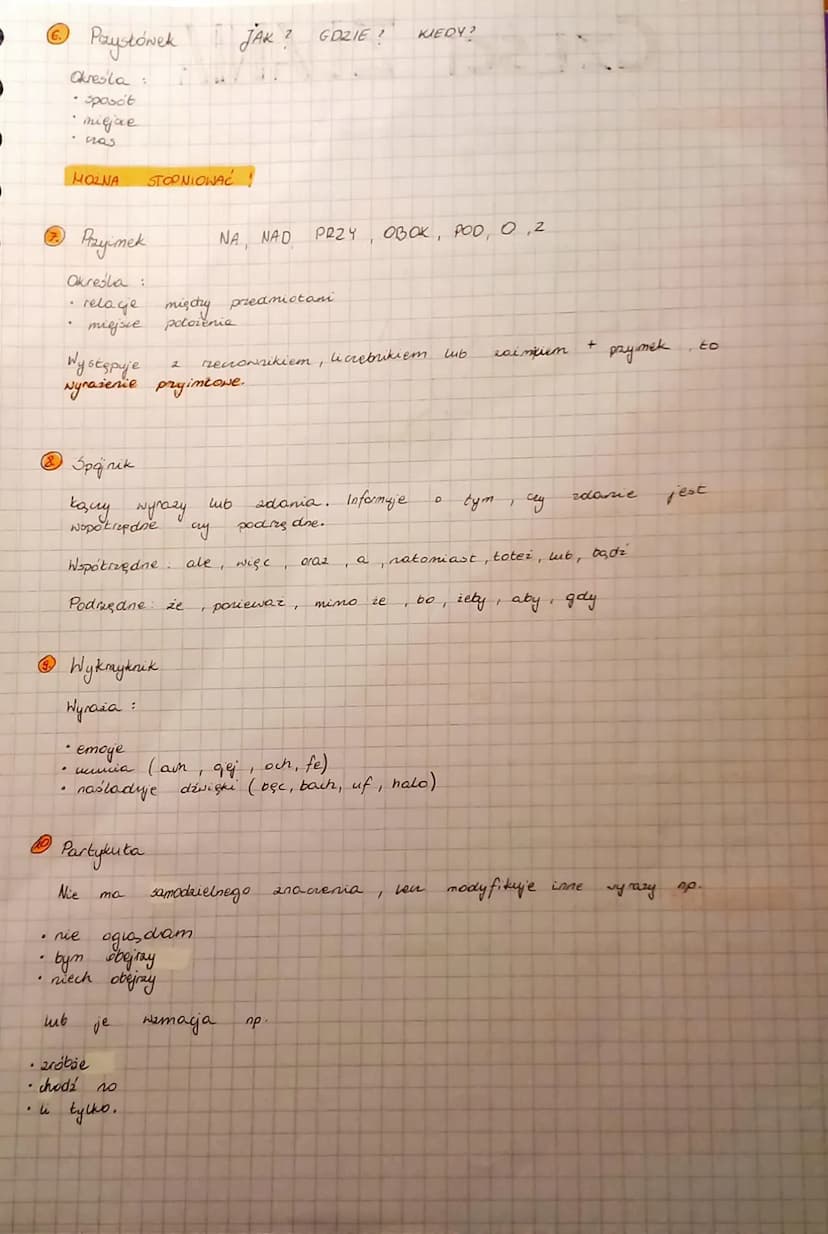 6. Przysłówek JAK? GDZIE? KIEDY?
Określa :
• sposób
• miejsce
• czas
MOŻNA STOPNIOWAĆ!
7. Przyimek NA, NAD PRZY, OBOK, POD, O, Z
Określa :
• relacje między przedmiotami
• miejsce położenia
Występuje z rzeczownikiem, liczebnikiem lub zaimkiem + przyimek, to
wyrażenie przyimkowe.
8. Spójnik
Łączy wyrazy lub zdania. Informuje o tym, czy zdanie jest
współrzędne czy podrzędne.
Współrzędne: ale, więc, oraz, a, natomiast, toteż, lub, bądź
Podrzędne: że, ponieważ, mimo że, bo, żeby, aby, gdy
9. Wykrzyknik
Wyraża :
• emocje
• uczucia (ach, ojej, och, fe)
• naśladuje dźwięki (bęc, bach, uf, halo)
10 Partykuła
Nie ma samodzielnego znaczenia, lecz modyfikuje inne wyrazy np.
• nie oglądam
• bym obejrzy
• niech obejrzy
lub je wzmacja np.
• zróbże
• chodź no
• li tylko.